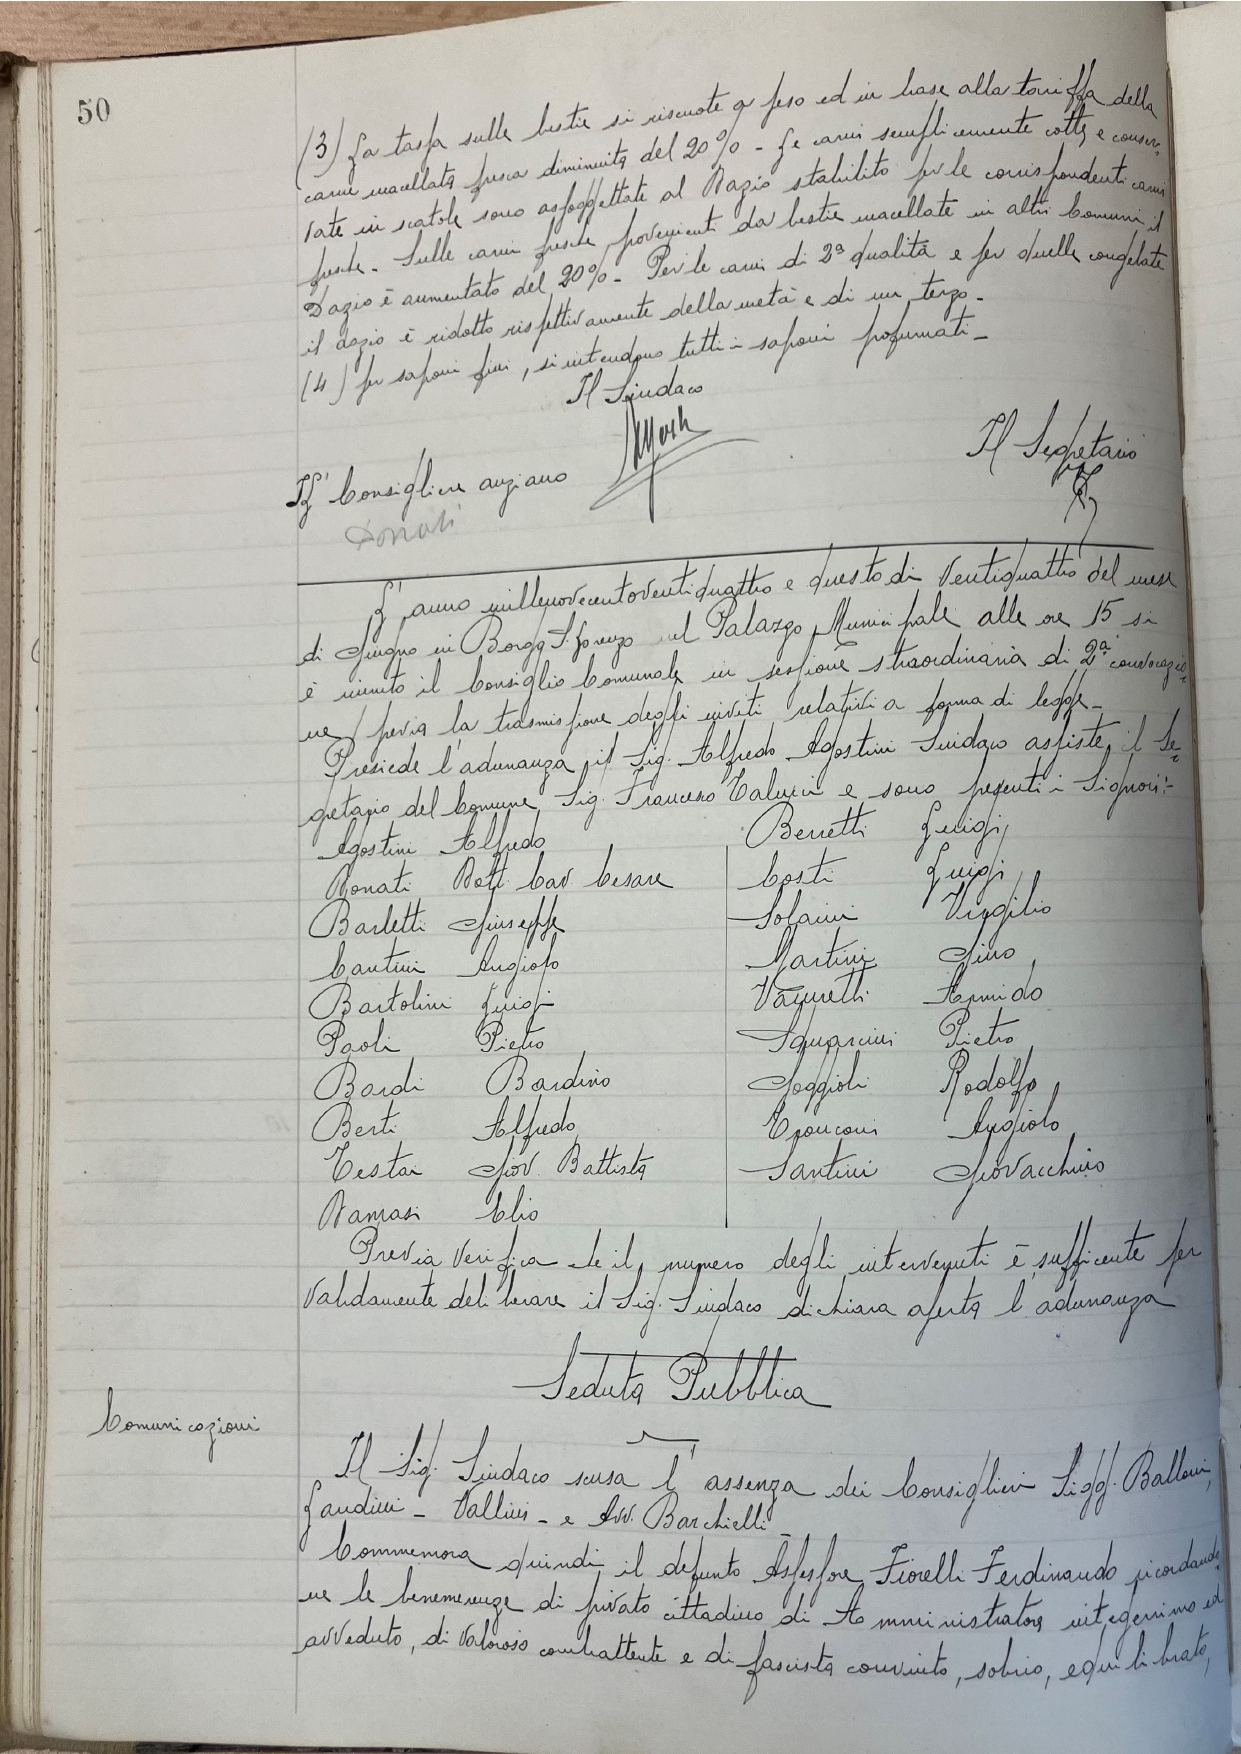 50
(3) La tassa sulle bestie si riscuote a peso ed in base alla tariffa della
carne macellata fresca diminuita del 20% - Le carni semplicemente cotte e conser-
vate in scatole sono assoggettate al Dazio stabilito per le corrispondenti carni
fresche - Sulle carni fresche provenienti da bestie macellate in altri Comuni il
Dazio è aumentato del 20% - Per le carni di 2ª qualità e per quelle congelate
il dazio è ridotto rispettivamente della metà e di un terzo -
(4) per saponi fini, si intendono tutti i saponi profumati -
Il Sindaco
Il Segretario
L' Consigliere anziano
Donati
L'anno millenovecentoventiquattro e questo dì Ventiquattro del mese
di Giugno in Borgo S. Lorenzo nel Palazzo Municipale alle ore 15 si
è riunito il Consiglio Comunale in sessione straordinaria di 2ª convocazio-
ne previa la trasmissione degli inviti relativi a forma di legge -
Presiede l'adunanza il Sig. Alfredo Agostini Sindaco assiste il Se-
gretario del Comune Sig. Francesco Calucci e sono presenti i Signori:-
Agostini Alfredo
Donati Dott. Cav. Cesare
Barletti Giuseppe
Cantini Angiolo
Bartolini Luigi
Paoli Pietro
Bardi Bardino
Berti Alfredo
Testai Giov. Battista
Damasi Elio
Berretti Luigi
Costi Luigi
Solaini Virgilio
Martini Gino
Vannetti Armido
Squarcini Pietro
Poggioli Rodolfo
Tronconi Angiolo
Santini Giovacchino
Previa verifica che il numero degli intervenuti è sufficente per
validamente deliberare il Sig. Sindaco dichiara aperta l'adunanza
Seduta Pubblica
Comunicazioni
Il Sig. Sindaco scusa l'assenza dei Consiglieri Sigg. Balloni,
Landini - Vallini - e Avv. Barchielli -
Commemora quindi il defunto Assessore Fiorelli Ferdinando ricordando-
ne le benemerenze di privato cittadino di Amministratore integerrimo ed
avveduto, di valoroso combattente e di fascista convinto, sobrio, equilibrato,